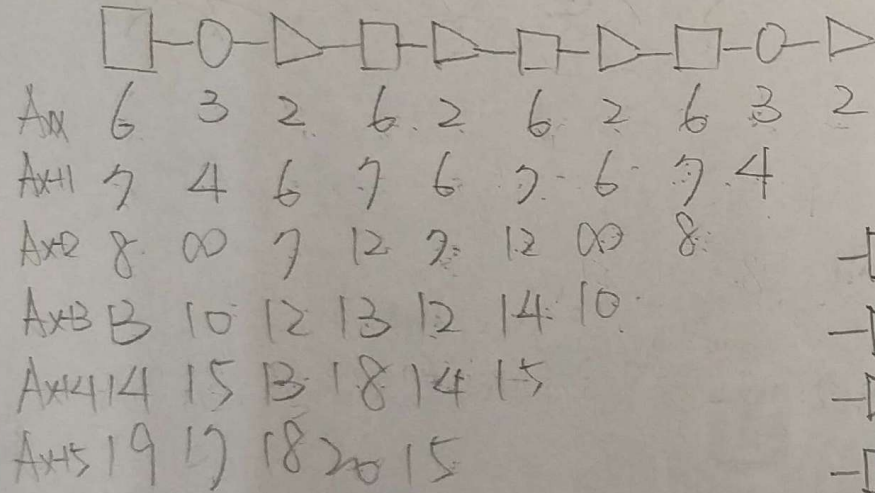 Ax 6 3 2 6 2 6 2 6 3 2
Ax+1 7 4 6 7 6 7 6 7 4
Ax+2 8 8 7 12 7 12 8 8
Ax+3 13 10 12 13 12 14 10
Ax+4 14 15 13 18 14 15
Ax+5 19 17 18 20 15